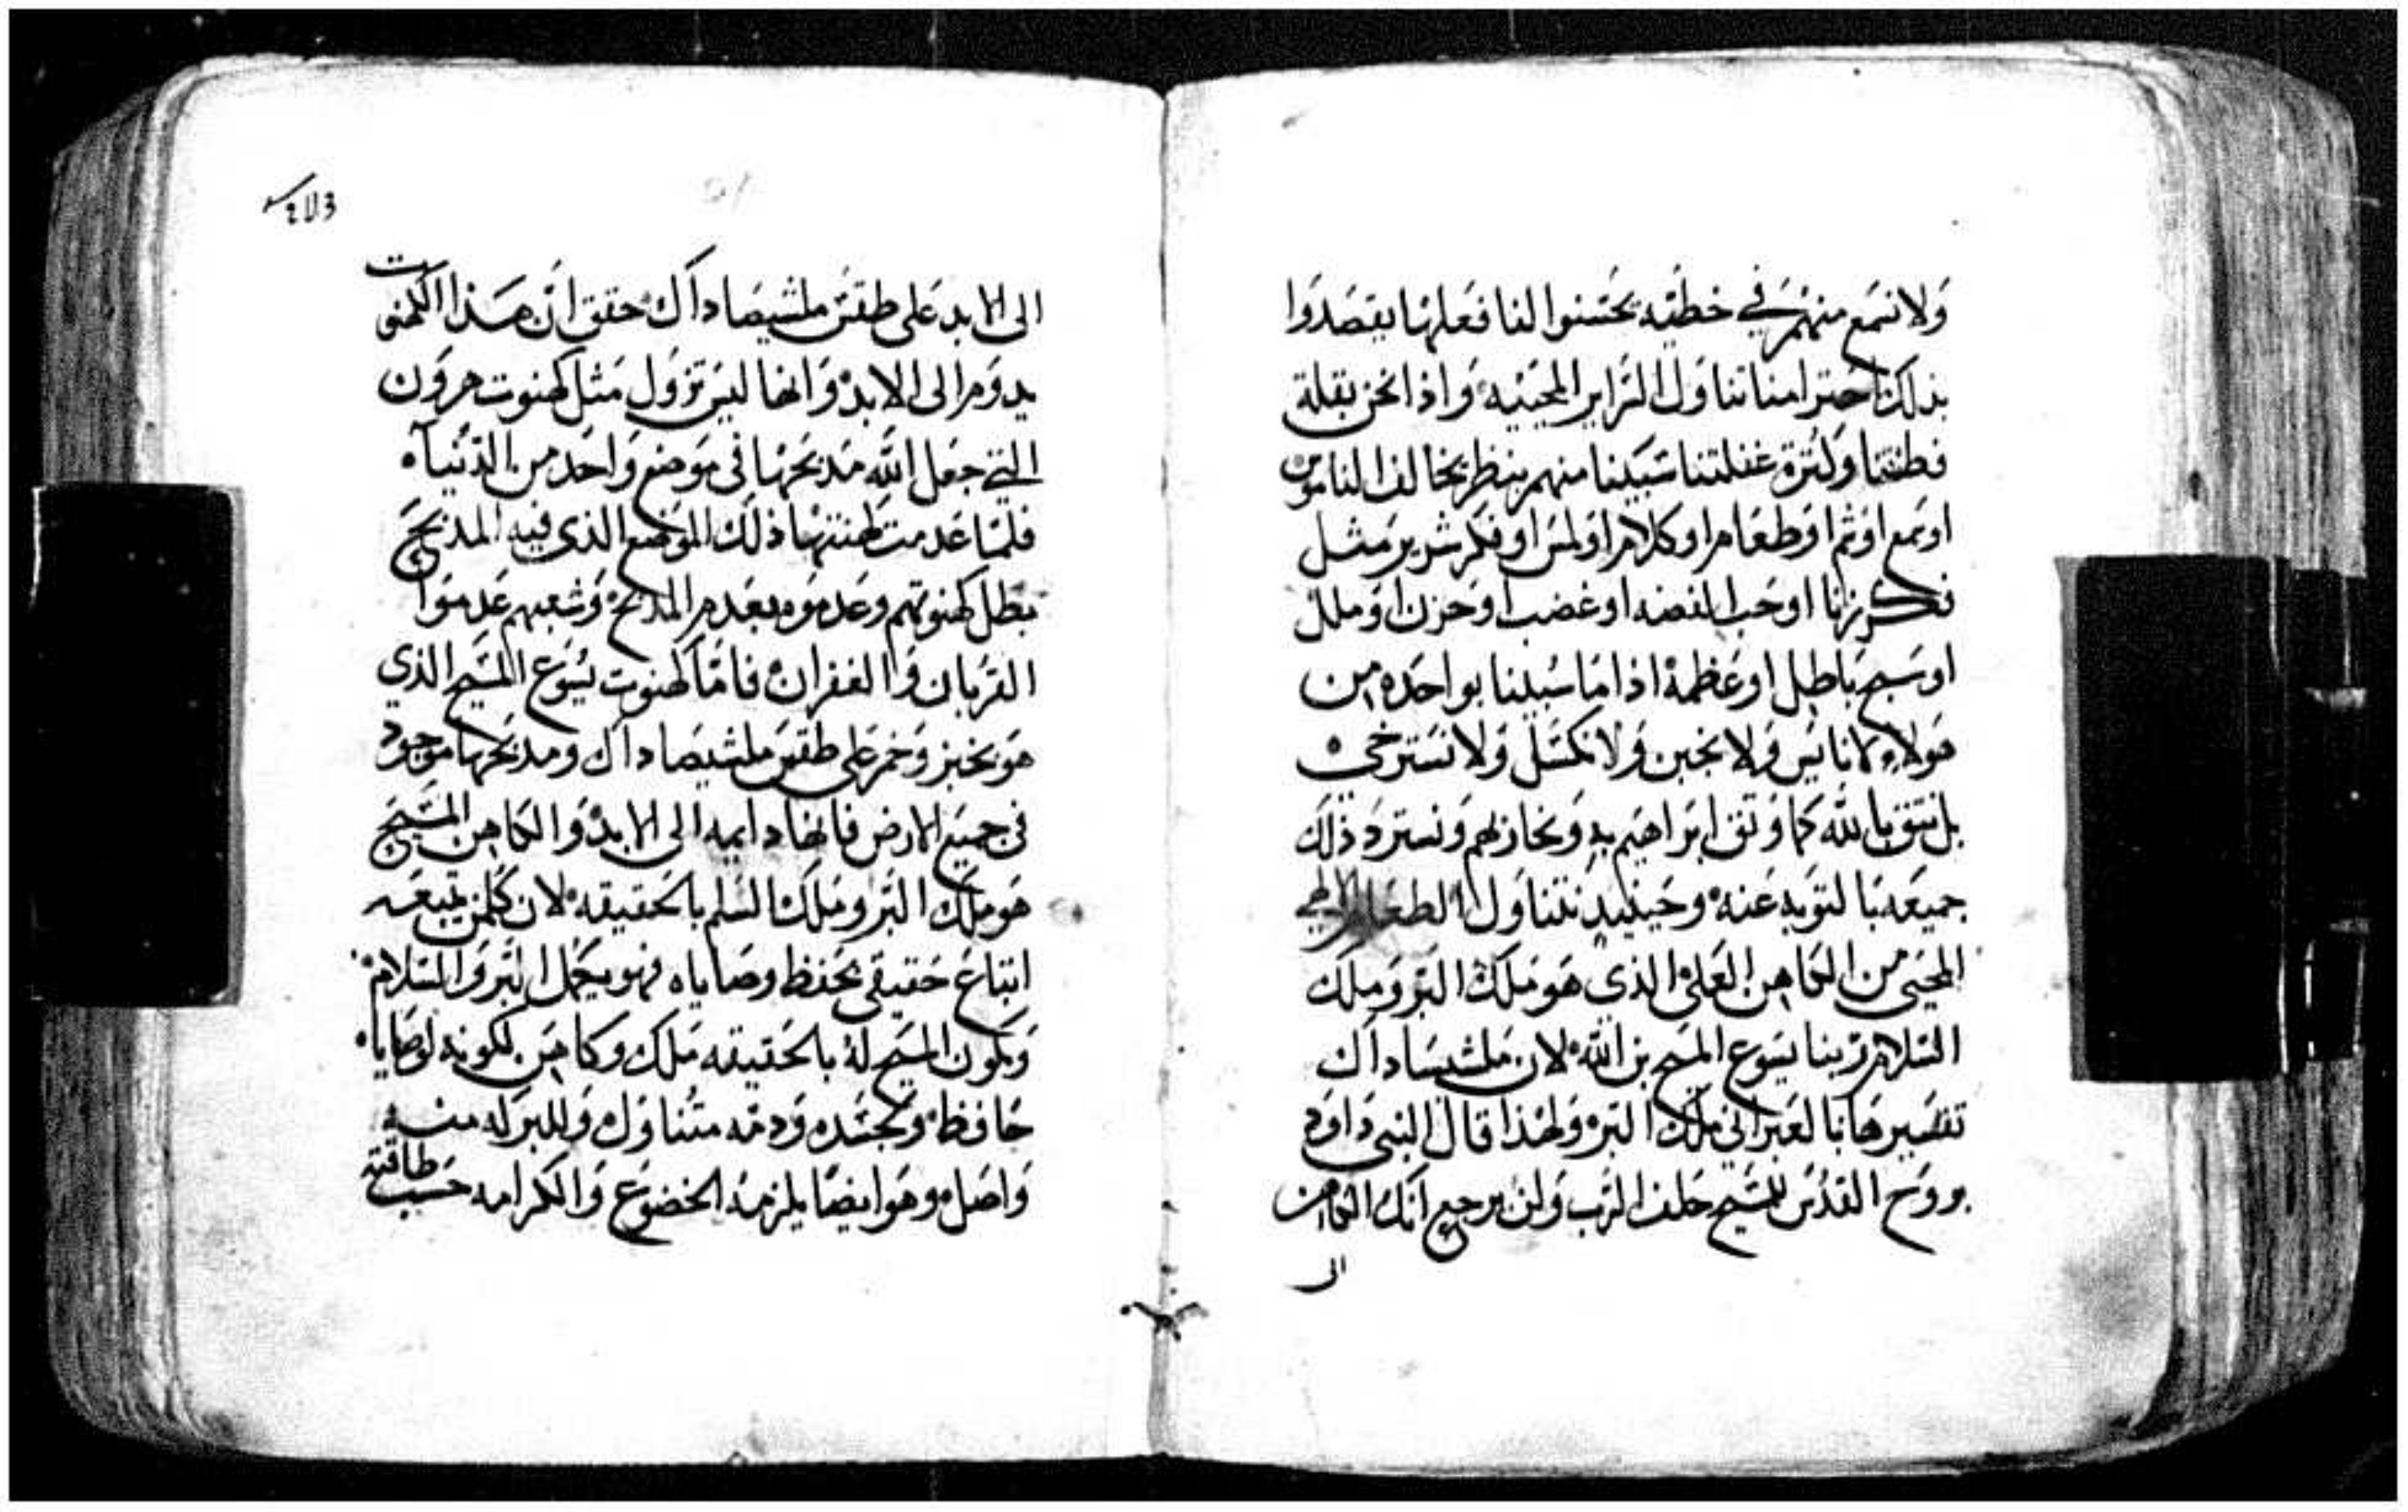 ولا نسمع منهم في خطيه يحسنوا لنا فعلها يقصدوا
بذلك احترامنا تناول السراير المحييه واذا نحن بقلة
فطنتنا وكثرة غفلتنا سبينا منهم بنظر يخالف الناموس
او سمع او شم او طعام او كلام او لمس او فكر شرير مثل
فكر زنا او حب الفضه او غضب او حزن او ملل
او سبح باطل او عظمة اذا ما سبينا بواحده من
هولاء لا ناييس ولا نجبن ولا نكسل ولا نسترخي
بل نثق بالله كما وثق ابراهيم به ونحاربهم ونسترد ذلك
جميعه بالتوبه عنه وحينيد نتناول الطعام الالهي
المحيي من الكاهن العلي الذي هو ملك البر وملك
السلام ربنا يسوع المسيح بن الله لان ملشيساداك
تفسيرها بالعبراني ملك البر ولهذا قال النبي داود
بروح القدس للمسيح حلف الرب ولن يرجع انك الكاهن
الى
الى الابد على طقس ملشيصاداك حقق ان هذا الكهنوت
يدوم الى الابد وانها ليس تزول مثل كهنوت هرون
التي جعل الله مدبحها في موضع واحد من الدنيا
فلما عدمت طنتها ذلك الموضع الذي فيه المدبح
بطل كهنوتهم وعدموه بعدم المدبح وشعبهم عدموا
القربان والغفران فاما كهنوت يسوع المسيح الذي
هو بخبز وخمر على طقس ملشيصاداك ومدبحها موجود
في جميع الارض فانها دايمه الى الابد والكاهن المسيح
هو ملك البر وملك السلم بالحقيقه لان كلمن تبعه
اتباع حقيقي بحفظ وصاياه فهو يعمل البر والسلام
ويكون المسيح له بالحقيقه ملك وكاهن لكونه لوصاياه
حافظ ولجسده ودمه متناول وللبركه منه
واصل وهو ايضا يلزمه الخضوع والكرامه حسب طاقته